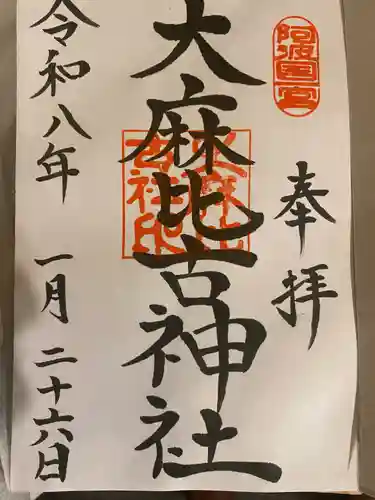 阿波國一宮
奉拝
大麻比古神社
大麻比古社印
令和八年
一月二十六日